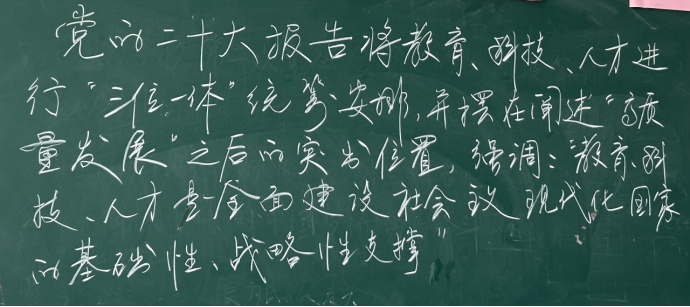 党的二十大报告将教育、科技、人才进
行“三位一体”统筹安排，并摆在阐述“高质
量发展”之后的突出位置，强调：“教育、科
技、人才是全面建设社会主义现代化国家
的基础性、战略性支撑”